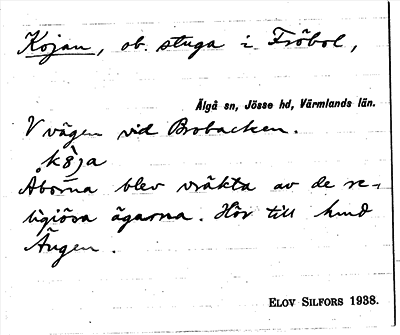 Kojan, ob. stuga i Fröbol,
Älgå sn, Jösse hd, Värmlands län.
V vägen vid Brobacken.
Åborna blev vräkta av de re-
ligiösa ägarna. Hör till hmd
Ängen.
ELOV SILFORS 1938.